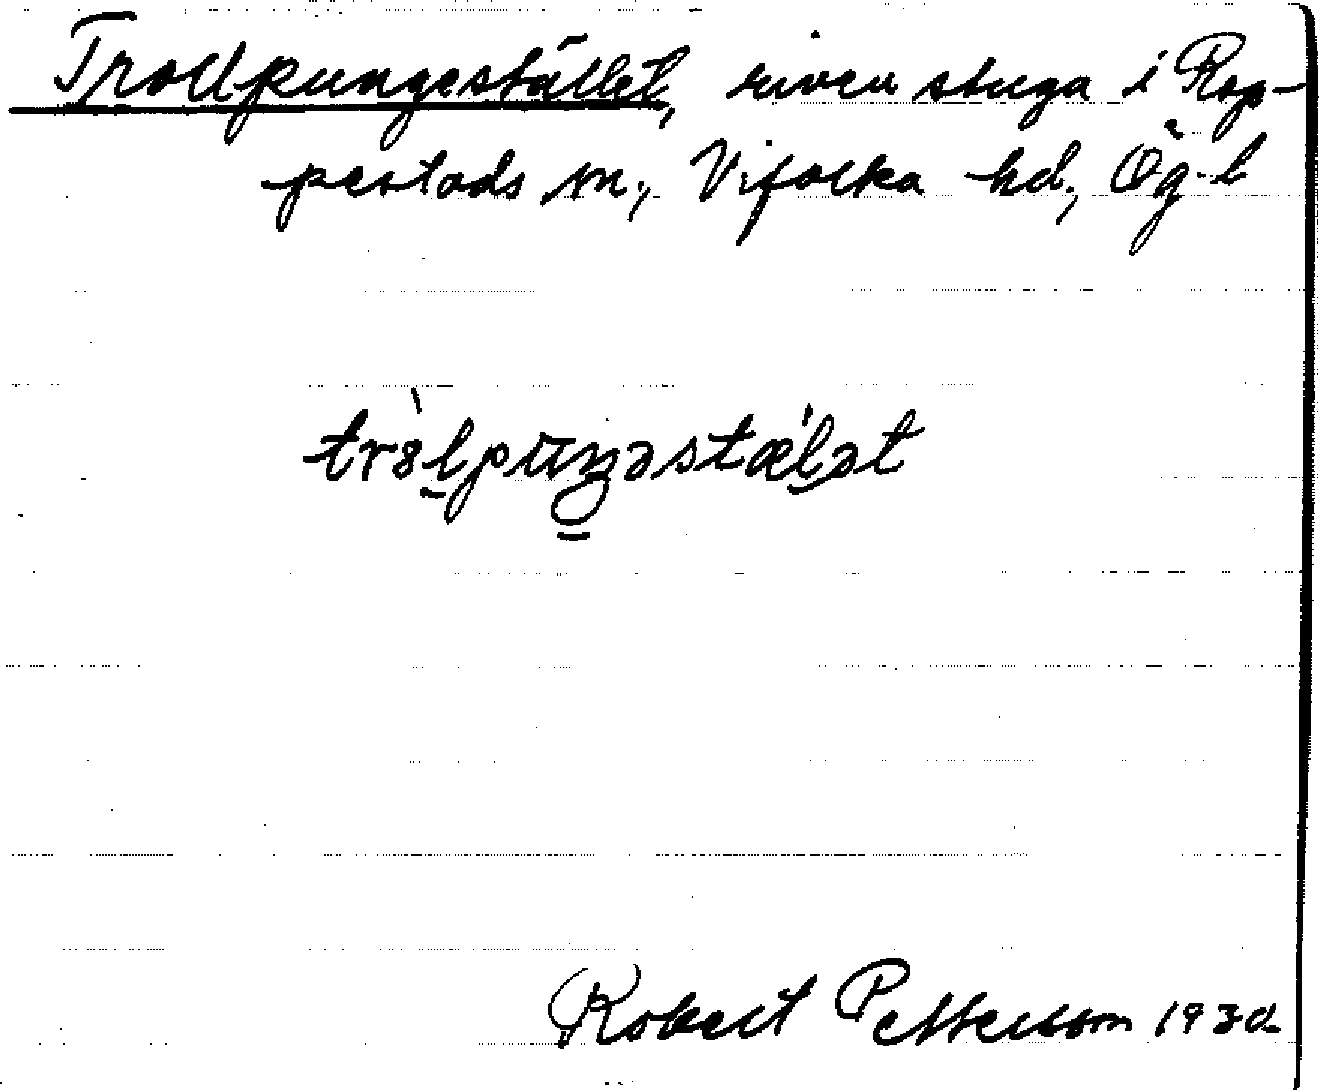 Trollpungestället, riven stuga i Rap-
pestads sn, Vifolka hd, Ög. l
trölpuŋəstæ̀lət
Robert Pettersson 1930